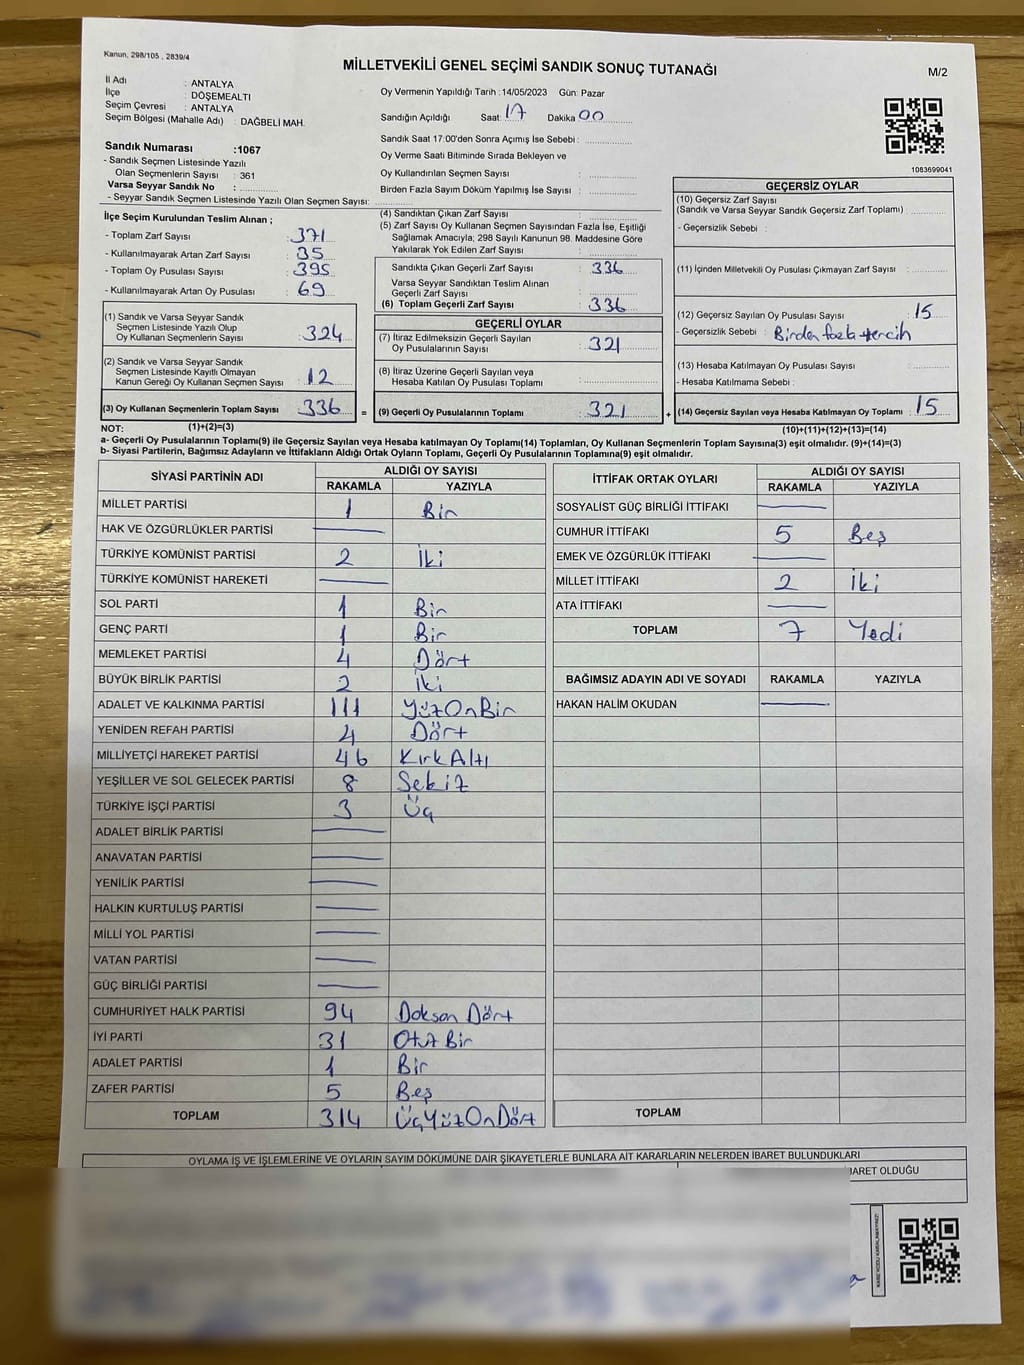 Kanun, 298/105 , 2839/4
MİLLETVEKİLİ GENEL SEÇİMİ SANDIK SONUÇ TUTANAĞI
M/2
İl Adı : ANTALYA
İlçe : DÖŞEMEALTI
Seçim Çevresi : ANTALYA
Seçim Bölgesi (Mahalle Adı) : DAĞBELİ MAH.
Oy Vermenin Yapıldığı Tarih :14/05/2023 Gün: Pazar
Sandığın Açıldığı Saat: 17 Dakika 00
Sandık Saat 17:00'den Sonra Açımış İse Sebebi :
Oy Verme Saati Bitiminde Sırada Bekleyen ve
Oy Kullandırılan Seçmen Sayısı :
Birden Fazla Sayım Döküm Yapılmış İse Sayısı :
1083699041
Sandık Numarası :1067
- Sandık Seçmen Listesinde Yazılı
Olan Seçmenlerin Sayısı : 361
Varsa Seyyar Sandık No :
- Seyyar Sandık Seçmen Listesinde Yazılı Olan Seçmen Sayısı:
İlçe Seçim Kurulundan Teslim Alınan ;
- Toplam Zarf Sayısı : 371
- Kullanılmayarak Artan Zarf Sayısı : 35
- Toplam Oy Pusulası Sayısı : 395
- Kullanılmayarak Artan Oy Pusulası : 69
(1) Sandık ve Varsa Seyyar Sandık
Seçmen Listesinde Yazılı Olup
Oy Kullanan Seçmenlerin Sayısı : 324
(2) Sandık ve Varsa Seyyar Sandık
Seçmen Listesinde Kayıtlı Olmayan
Kanun Gereği Oy Kullanan Seçmen Sayısı : 12
(3) Oy Kullanan Seçmenlerin Toplam Sayısı : 336
(1)+(2)=(3)
(4) Sandıktan Çıkan Zarf Sayısı :
(5) Zarf Sayısı Oy Kullanan Seçmen Sayısından Fazla İse, Eşitliği
Sağlamak Amacıyla; 298 Sayılı Kanunun 98. Maddesine Göre
Yakılarak Yok Edilen Zarf Sayısı :
Sandıkta Çıkan Geçerli Zarf Sayısı : 336
Varsa Seyyar Sandıktan Teslim Alınan
Geçerli Zarf Sayısı :
(6) Toplam Geçerli Zarf Sayısı : 336
GEÇERLİ OYLAR
(7) İtiraz Edilmeksizin Geçerli Sayılan
Oy Pusulalarının Sayısı : 321
(8) İtiraz Üzerine Geçerli Sayılan veya
Hesaba Katılan Oy Pusulası Toplamı :
= (9) Geçerli Oy Pusulalarının Toplamı : 321
GEÇERSİZ OYLAR
(10) Geçersiz Zarf Sayısı
(Sandık ve Varsa Seyyar Sandık Geçersiz Zarf Toplamı) :
- Geçersizlik Sebebi :
(11) İçinden Milletvekili Oy Pusulası Çıkmayan Zarf Sayısı :
(12) Geçersiz Sayılan Oy Pusulası Sayısı : 15
- Geçersizlik Sebebi : Birden fazla tercih
(13) Hesaba Katılmayan Oy Pusulası Sayısı :
- Hesaba Katılmama Sebebi :
+ (14) Geçersiz Sayılan veya Hesaba Katılmayan Oy Toplamı : 15
(10)+(11)+(12)+(13)=(14)
NOT:
a- Geçerli Oy Pusulalarının Toplamı(9) ile Geçersiz Sayılan veya Hesaba katılmayan Oy Toplamı(14) Toplamları, Oy Kullanan Seçmenlerin Toplam Sayısına(3) eşit olmalıdır. (9)+(14)=(3)
b- Siyasi Partilerin, Bağımsız Adayların ve İttifakların Aldığı Ortak Oyların Toplamı, Geçerli Oy Pusulalarının Toplamına(9) eşit olmalıdır.
SİYASİ PARTİNİN ADI ALDIĞI OY SAYISI
RAKAMLA YAZIYLA
MİLLET PARTİSİ 1 Bir
HAK VE ÖZGÜRLÜKLER PARTİSİ
TÜRKİYE KOMÜNİST PARTİSİ 2 İki
TÜRKİYE KOMÜNİST HAREKETİ
SOL PARTİ 1 Bir
GENÇ PARTİ 1 Bir
MEMLEKET PARTİSİ 4 Dört
BÜYÜK BİRLİK PARTİSİ 2 İki
ADALET VE KALKINMA PARTİSİ 111 YüzOnBir
YENİDEN REFAH PARTİSİ 4 Dört
MİLLİYETÇİ HAREKET PARTİSİ 46 Kırk Altı
YEŞİLLER VE SOL GELECEK PARTİSİ 8 Sekiz
TÜRKİYE İŞÇİ PARTİSİ 3 Üç
ADALET BİRLİK PARTİSİ
ANAVATAN PARTİSİ
YENİLİK PARTİSİ
HALKIN KURTULUŞ PARTİSİ
MİLLİ YOL PARTİSİ
VATAN PARTİSİ
GÜÇ BİRLİĞİ PARTİSİ
CUMHURİYET HALK PARTİSİ 94 Doksan Dört
İYİ PARTİ 31 Otuz Bir
ADALET PARTİSİ 1 Bir
ZAFER PARTİSİ 5 Beş
TOPLAM 314 ÜçYüzOnDört
İTTİFAK ORTAK OYLARI ALDIĞI OY SAYISI
RAKAMLA YAZIYLA
SOSYALİST GÜÇ BİRLİĞİ İTTİFAKI
CUMHUR İTTİFAKI 5 Beş
EMEK VE ÖZGÜRLÜK İTTİFAKI
MİLLET İTTİFAKI 2 İki
ATA İTTİFAKI
TOPLAM 7 Yedi
BAĞIMSIZ ADAYIN ADI VE SOYADI RAKAMLA YAZIYLA
HAKAN HALİM OKUDAN
TOPLAM
OYLAMA İŞ VE İŞLEMLERİNE VE OYLARIN SAYIM DÖKÜMÜNE DAİR ŞİKAYETLERLE BUNLARA AİT KARARLARIN NELERDEN İBARET BULUNDUKLARI
BARET OLDUĞU
KAREKODU KARALAMAYINIZ!